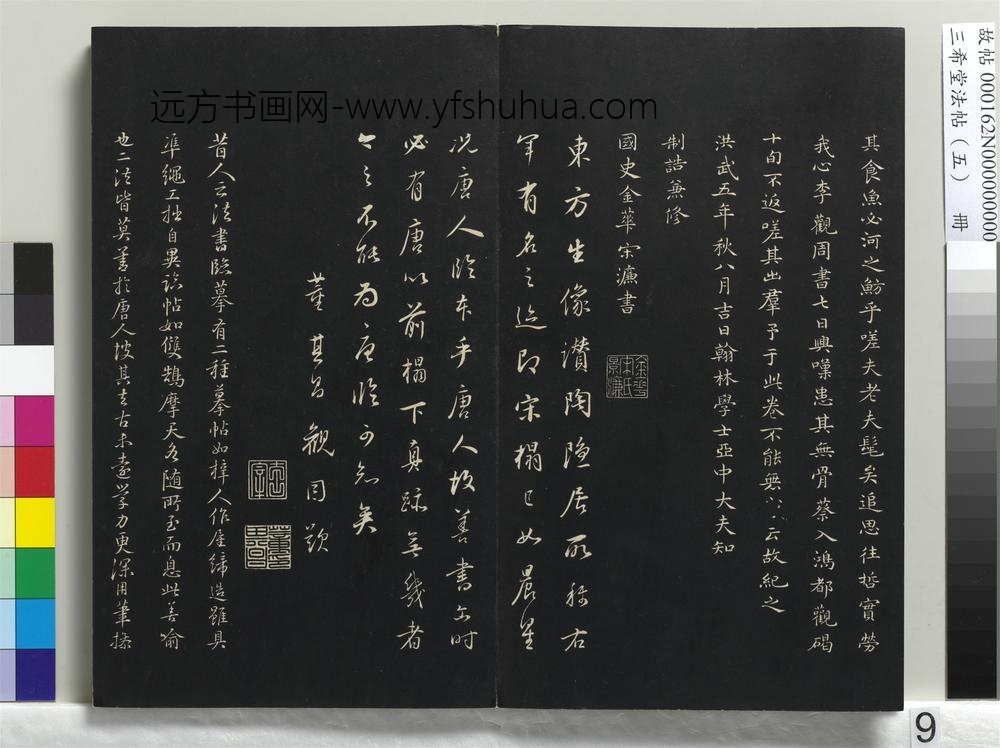 其食魚必河之魴乎嗟夫老夫髦矣追思往哲實勞
我心李觀周書七日興嘆患其無骨蔡入鴻都觀碣
十旬不返嗟其出羣予于此卷不能無六云故紀之
洪武五年秋八月吉日翰林學士亞中大夫知
制誥兼修
國史金華宋濂書
金華宋氏景濂
東方生像讚陶隱居所稱右
軍有名之迹即宋榻已如晨星
況唐人臨本乎唐人故善書尔時
必有唐以前榻下真跡無幾者
今之不能為唐臨可知矣
董其昌觀因題
昔人云法書臨摹有二種摹帖如梓人作屋締造雖具
準繩工拙自異臨帖如雙鵠摩天各隨所至而息此善喻
也二法皆莫善於唐人故其去古未遠學力更深用筆操
远方书画网-www.yfshuhua.com
故帖 000162N000000000
三希堂法帖（五） 冊
9